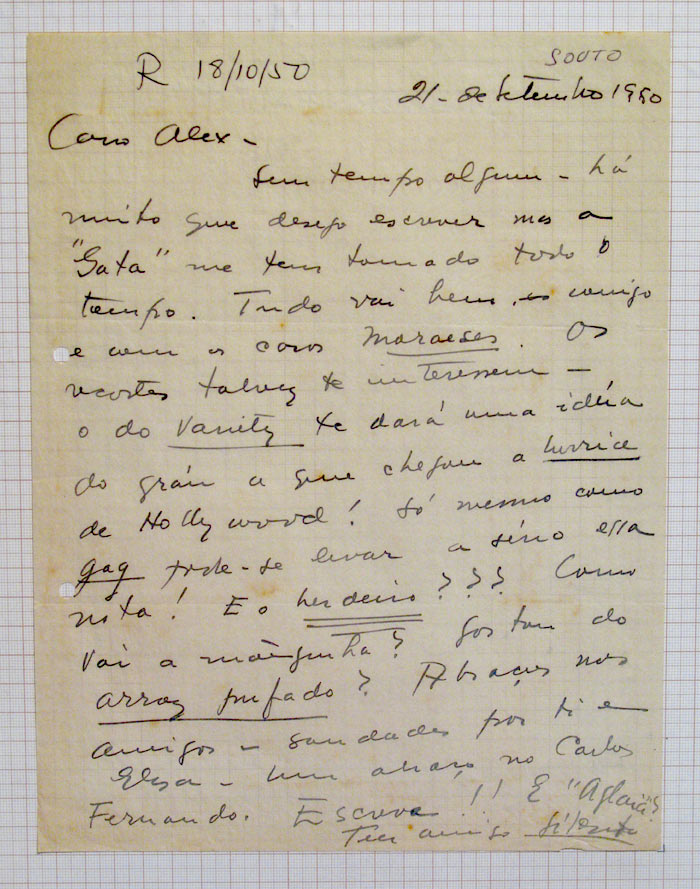 R 18/10/50
SOUTO
21 - de Setembro 1950
Caro Alex -
Sem tempo algum - há
muito que desejo escrever mas a
"Gata" me tem tomado todo o
tempo. Tudo vai bem, comigo
e com os caros Moraeses. Os
recortes talvez te interessem -
o do Vanity te dará uma idéia
do gráu a que chegou a burrice
de Hollywood! Só mesmo como
gag pode-se levar a sério essa
nota! E o herdeiro ? ? ?  Como
vai a mãezinha? Gostou do
arroz pufado? Abraços nos
amigos - saudades por ti e
Elisa - um abraço no Carlos
Fernando. Escreva !! E "Aglaia"?
Teu amigo